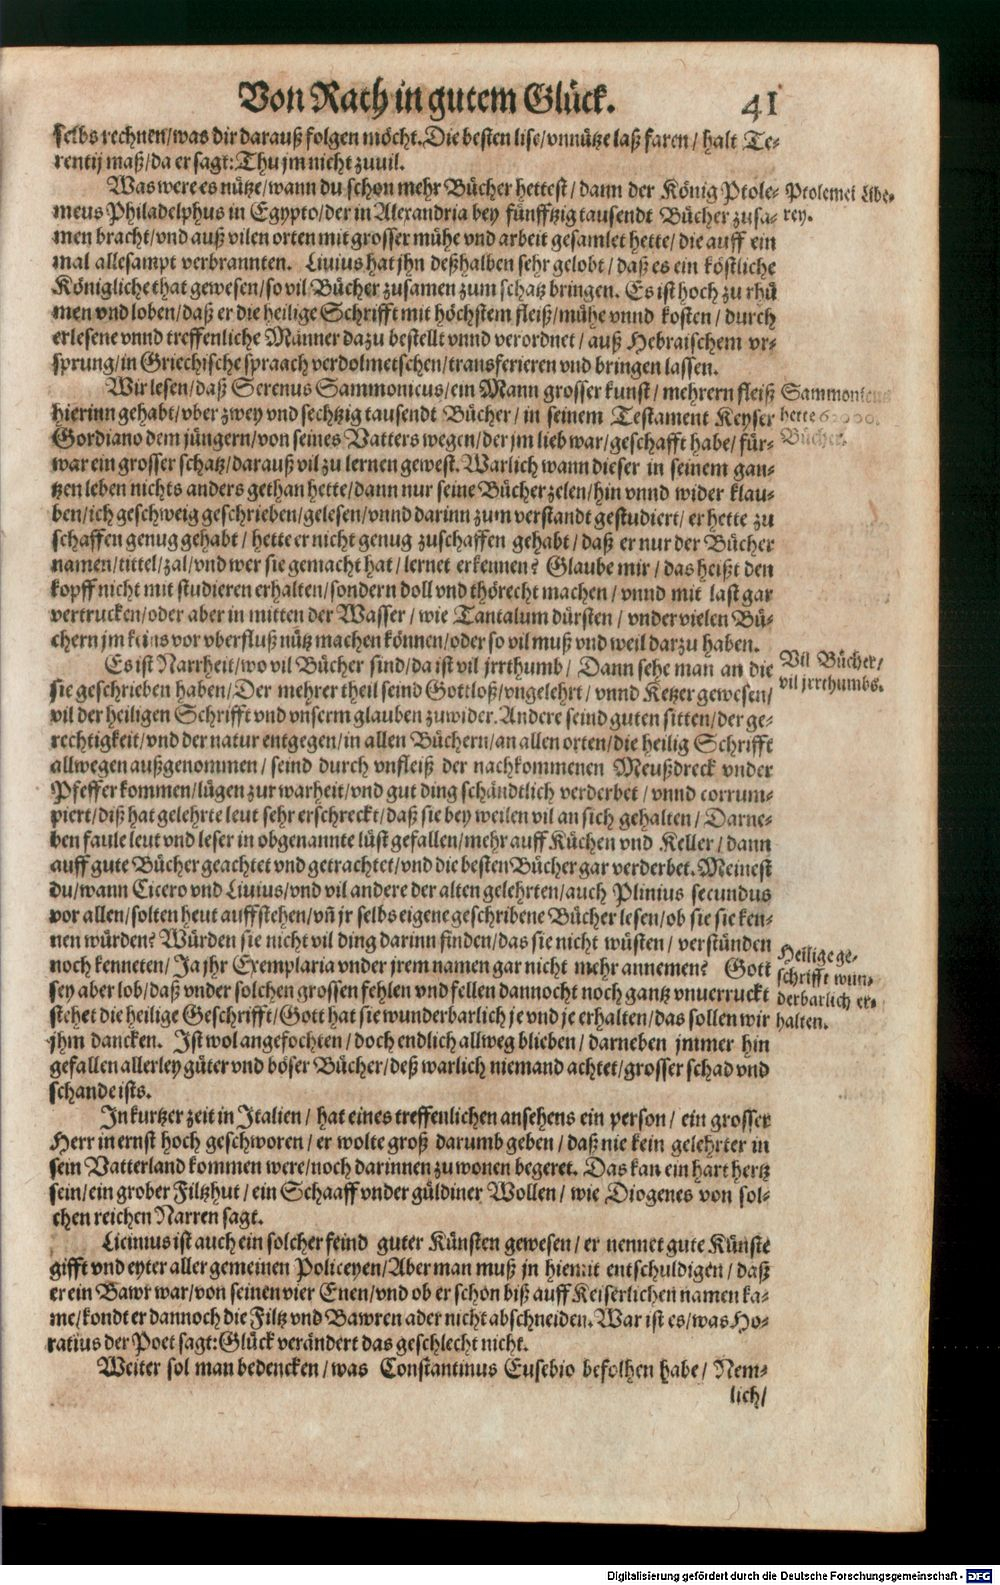 Von Rath in gutem Glück. 41
selbs rechnen/was dir darauß folgen möcht. Die besten lise/vnnütze laß faren/ halt Te-
rentij maß/da er sagt: Thu jm nicht zuuil.
Was were es nütze/wann du schon mehr Bücher hettest/ dann der König Ptole-
Ptolemei Libe-
meus Philadelphus in Egypto/der in Alexandria bey fünfftzig tausendt Bücher zusa-
rey.
men bracht/vnd auß vilen orten mit grosser mühe vnd arbeit gesamlet hette/ die auff ein
mal allesampt verbrannten. Liuius hat jhn deßhalben sehr gelobt/ daß es ein köstliche
Königliche that gewesen/so vil Bücher zusamen zum schatz bringen. Es ist hoch zu rhü
men vnd loben/daß er die heilige Schrifft mit höchstem fleiß/mühe vnnd kosten/ durch
erlesene vnnd treffenliche Männer dazu bestellt vnnd verordnet/ auß Hebraischem vr-
sprung/in Griechische spraach verdolmetschen/transferieren vnd bringen lassen.
Wir lesen/daß Serenus Sammonicus/ein Mann grosser kunst/ mehrern fleiß
Sammonicus
hierinn gehabt/vber zwey vnd sechtzig tausendt Bücher/ in seinem Testament Keyser
hette 62000.
Gordiano dem jüngern/von seines Vatters wegen/der jm lieb war/geschafft habe/für-
Bücher.
war ein grosser schatz/darauß vil zu lernen gewest. Warlich wann dieser in seinem gan-
tzen leben nichts anders gethan hette/dann nur seine Bücher zelen/hin vnnd wider klau-
ben/ich geschweig geschrieben/gelesen/vnnd darinn zum verstandt gestudiert/ er hette zu
schaffen genug gehabt/ hette er nicht genug zuschaffen gehabt/ daß er nur der Bücher
namen/tittel/zal/vnd wer sie gemacht hat/ lernet erkennen? Glaube mir/ das heißt den
kopff nicht mit studieren erhalten/sondern doll vnd thörecht machen/ vnnd mit last gar
vertrucken/oder aber in mitten der Wasser/ wie Tantalum dürsten/ vnder vielen Bü-
chern jm keins vor vberfluß nütz machen können/oder so vil muß vnd weil darzu haben.
Es ist Narrheit/wo vil Bücher sind/da ist vil jrrthumb/ Dann sehe man an die
Vil Bücher/
sie geschrieben haben/Der mehrer theil seind Gottloß/vngelehrt/ vnnd Ketzer gewesen/
vil jrrthumbs.
vil der heiligen Schrifft vnd vnserm glauben zuwider. Andere seind guten sitten/der ge-
rechtigkeit/vnd der natur entgegen/in allen Büchern/an allen orten/die heilig Schrifft
allwegen außgenommen/ seind durch vnfleiß der nachkommenen Meußdreck vnder
Pfeffer kommen/lügen zur warheit/vnd gut ding schändtlich verderbet/ vnnd corrum-
piert/diß hat gelehrte leut sehr erschreckt/daß sie bey weilen vil an sich gehalten/ Darne-
ben faule leut vnd leser in obgenannte lüst gefallen/mehr auff Küchen vnd Keller/ dann
auff gute Bücher geachtet vnd getrachtet/vnd die besten Bücher gar verderbet. Meinest
du/wann Cicero vnd Liuius/vnd vil andere der alten gelehrten/auch Plinius secundus
vor allen/solten heut auffstehen/vñ jr selbs eigene geschribene Bücher lesen/ob sie sie ken-
nen würden? Würden sie nicht vil ding darinn finden/das sie nicht wüsten/ verstünden
Heilige ge-
noch kenneten/ Ja jhr Exemplaria vnder jrem namen gar nicht mehr annemen? Gott
schrifft wun-
sey aber lob/daß vnder solchen grossen fehlen vnd fellen dannocht noch gantz vnuerruckt
derbarlich er-
stehet die heilige Geschrifft/Gott hat sie wunderbarlich je vnd je erhalten/das sollen wir
halten.
jhm dancken. Ist wol angefochten/ doch endlich allweg blieben/ darneben jmmer hin
gefallen allerley güter vnd böser Bücher/deß warlich niemand achtet/grosser schad vnd
schande ists.
In kurtzer zeit in Italien/ hat eines treffenlichen ansehens ein person/ ein grosser
Herr in ernst hoch geschworen/ er wolte groß darumb geben/ daß nie kein gelehrter in
sein Vatterland kommen were/noch darinnen zu wonen begeret. Das kan ein hart hertz
sein/ein grober Filtzhut/ein Schaaff vnder güldiner Wollen/ wie Diogenes von sol-
chen reichen Narren sagt.
Licinius ist auch ein solcher feind guter Künsten gewesen/ er nennet gute Künste
gifft vnd eyter aller gemeinen Policeyen/Aber man muß jn hiemit entschuldigen/ daß
er ein Bawr war/von seinen vier Enen/vnd ob er schon biß auff Keiserlichen namen ka-
me/kondt er dannoch die Filtz vnd Bawren ader nicht abschneiden. War ist es/was Ho-
ratius der Poet sagt: Glück verändert das geschlecht nicht.
Weiter sol man bedencken/ was Constantinus Eusebio befolhen habe/ Nem-
lich/
Digitalisierung gefördert durch die Deutsche Forschungsgemeinschaft - DFG